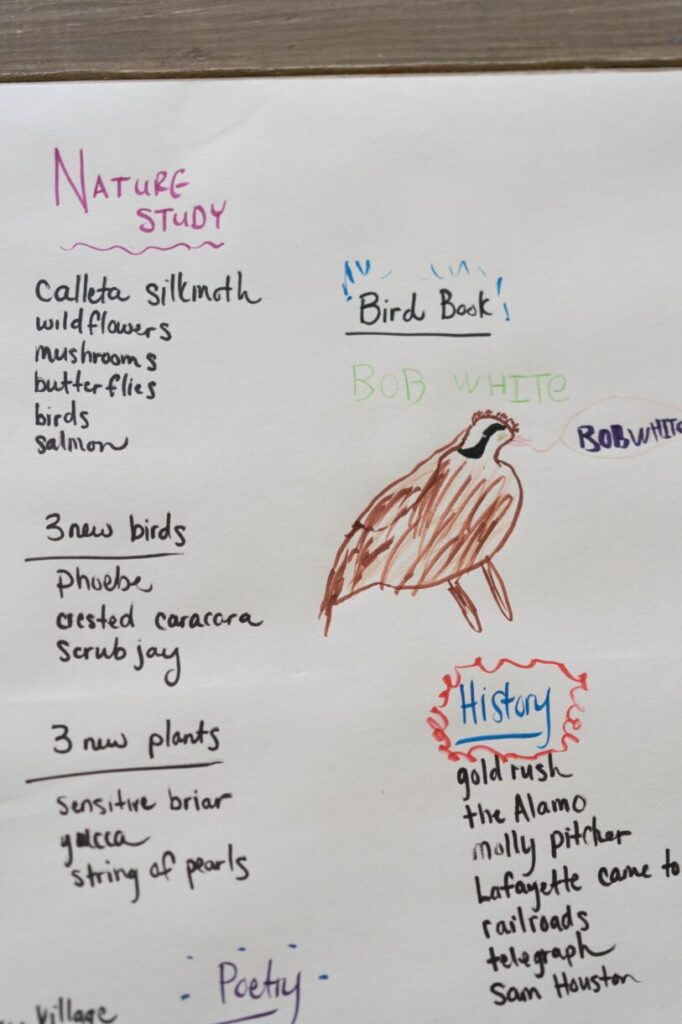 NATURE
STUDY
calleta silkmoth
wildflowers
mushrooms
butterflies
birds
salmon
3 new birds
phoebe
crested caracara
scrub jay
3 new plants
sensitive briar
yucca
string of pearls
Bird Book
BOB WHITE
BOBWHITE
History
gold rush
the Alamo
molly pitcher
Lafayette came to
railroads
telegraph
Sam Houston
Poetry
Village